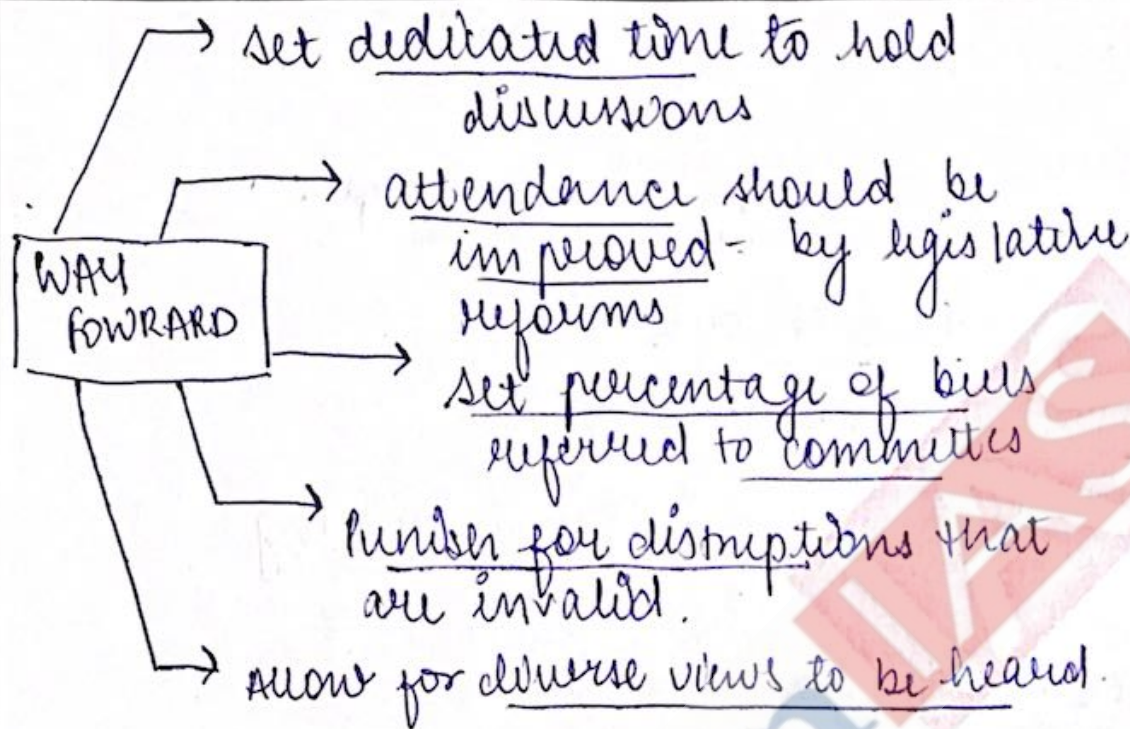 set dedicated time to hold
discussions
attendance should be
improved - by legislative
reforms
WAY
FOWRARD
set percentage of bills
referred to committes
Punish for disruptions that
are invalid.
Allow for diverse views to be heard.
IAS